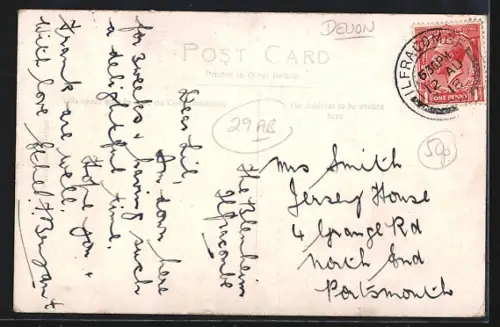 DEVON
POST CARD
Printed in Great Britain
The address to be written
here
ILFRACOMBE
12 AU
18
ONE PENNY
29AB
50p
The Blenheim
Ilfracombe
Dear Lil,
Am down here
for 3 weeks & having such
a delightful time.
Hope you &
Frank are well.
With love Ethel
Mrs Smith
Jersey House
4 Grange Rd
North End
Portsmouth